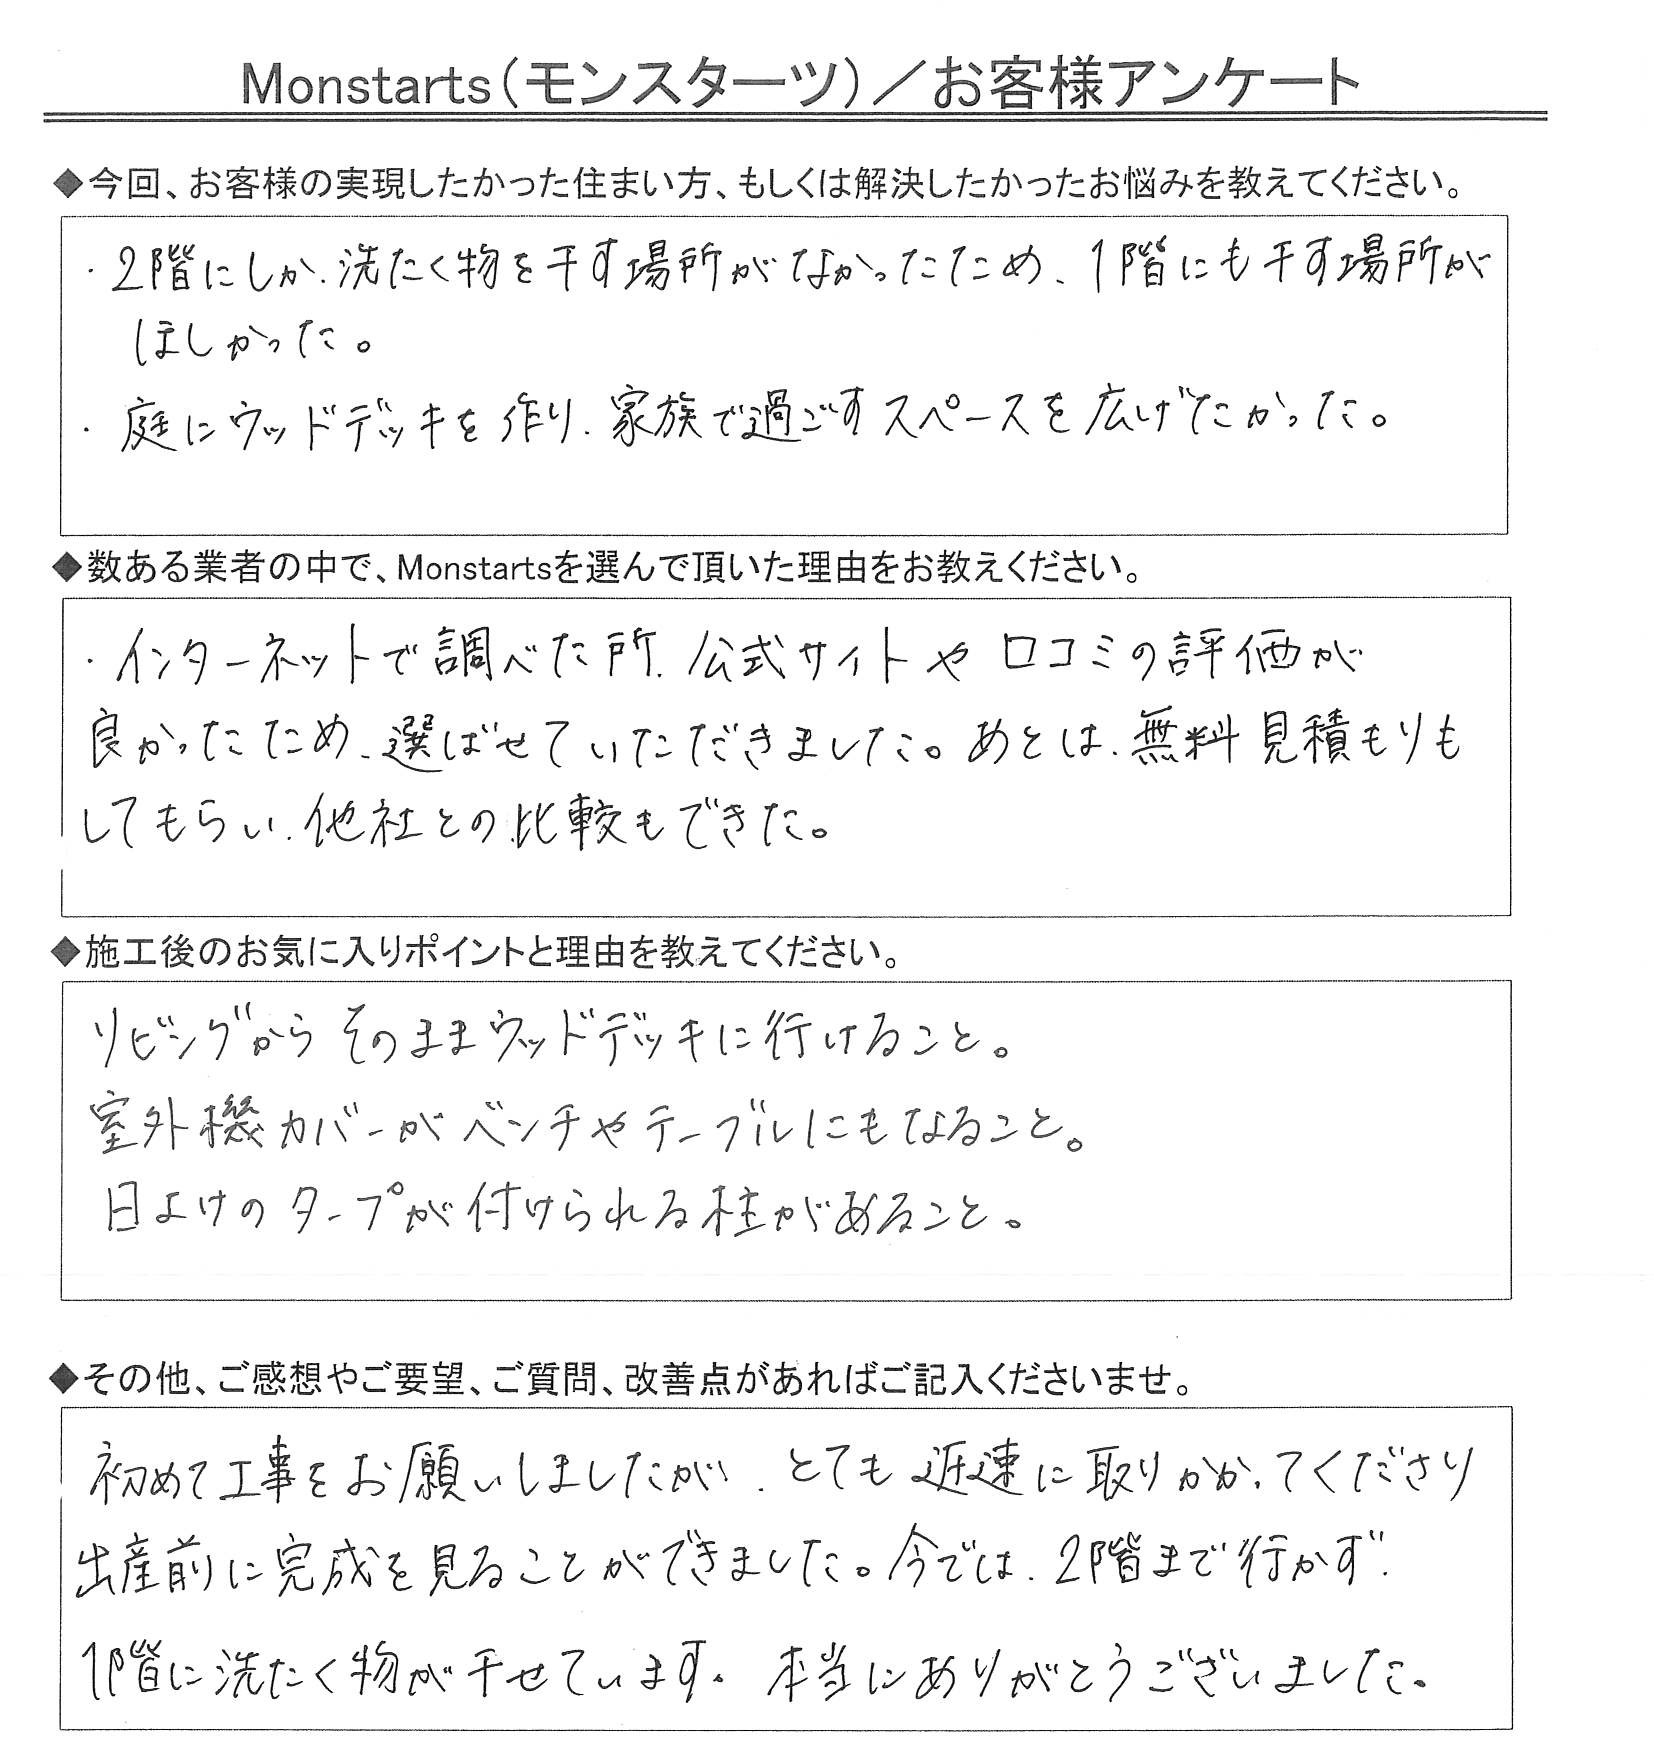 Monstarts（モンスターツ）／お客様アンケート
◆今回、お客様の実現したかった住まい方、もしくは解決したかったお悩みを教えてください。
・2階にしか、洗たく物を干す場所がなかったため、1階にも干す場所が
ほしかった。
・庭にウッドデッキを作り、家族で過ごすスペースを広げたかった。
◆数ある業者の中で、Monstartsを選んで頂いた理由をお教えください。
・インターネットで調べた所、公式サイトや口コミの評価が
良かったため、選ばせていただきました。あとは、無料見積もりも
してもらい、他社との比較もできた。
◆施工後のお気に入りポイントと理由を教えてください。
リビングからそのままウッドデッキに行けること。
室外機カバーがベンチやテーブルにもなること。
日よけのタープが付けられる柱があること。
◆その他、ご感想やご要望、ご質問、改善点があればご記入くださいませ。
初めて工事をお願いしましたが、とても迅速に取りかかってくださり
出産前に完成を見ることができました。今では、2階まで行かず、
1階に洗たく物が干せています。本当にありがとうございました。